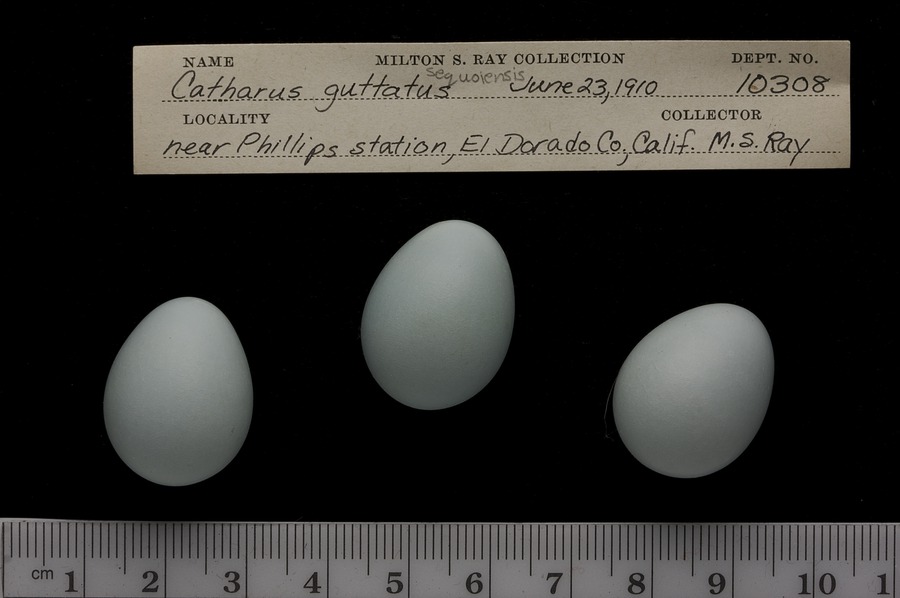 NAME MILTON S. RAY COLLECTION DEPT. NO.
sequoiensis
Catharus guttatus June 23, 1910 10308
LOCALITY COLLECTOR
near Phillips station, El Dorado Co., Calif. M. S. Ray
cm 1 2 3 4 5 6 7 8 9 10 1